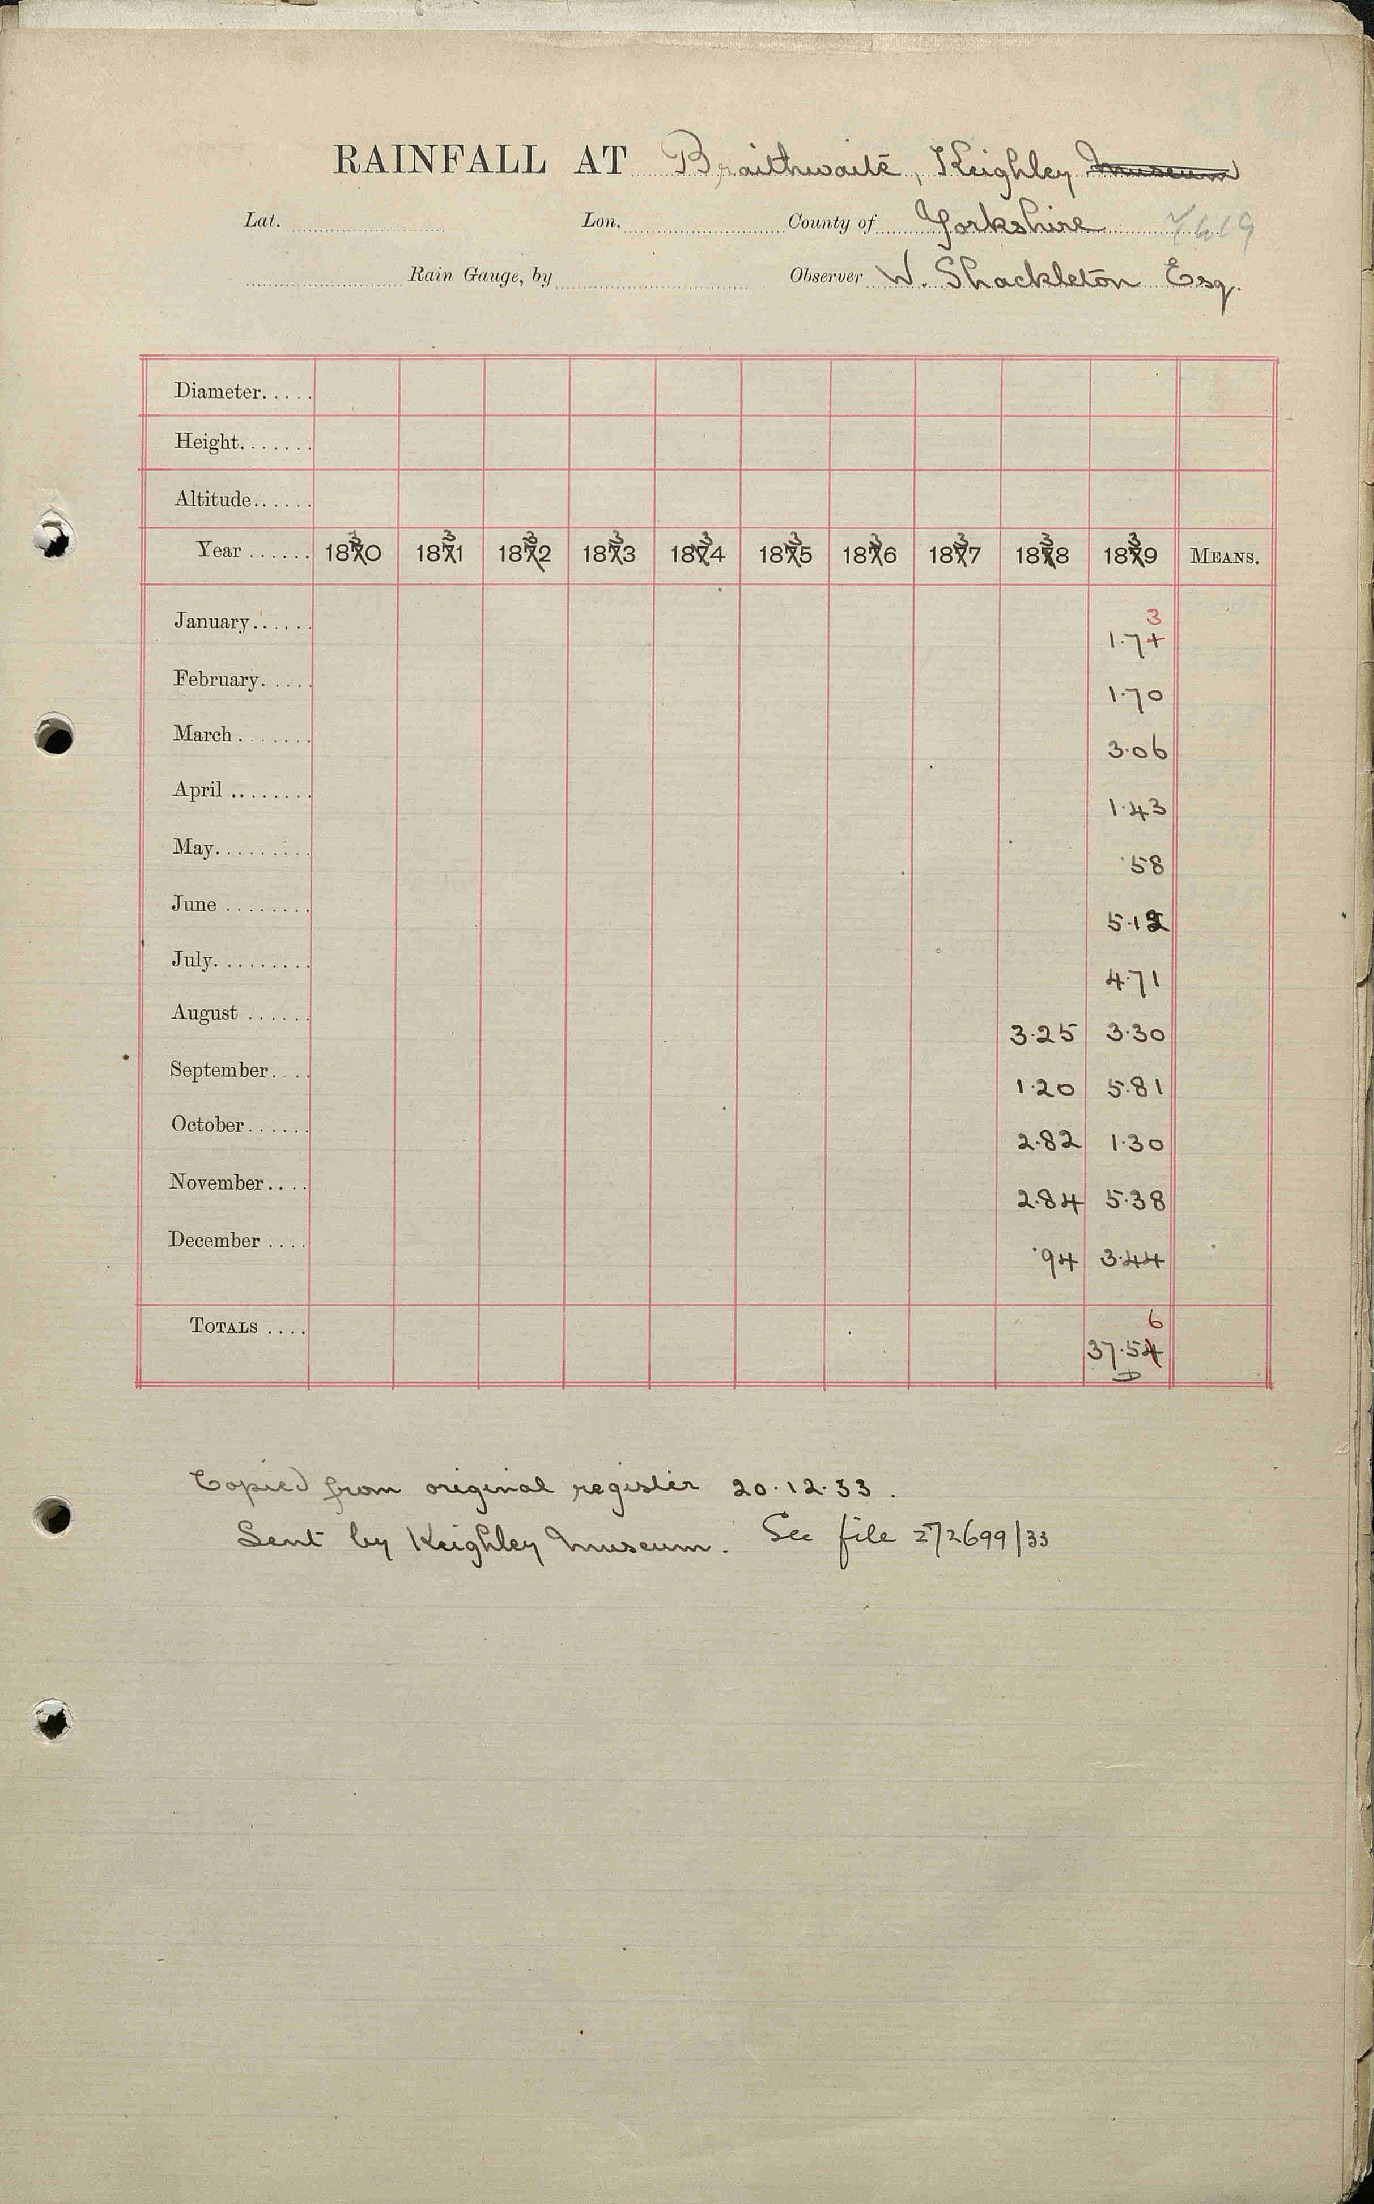 RAINFALL AT Braithwaite, Keighley Museum
Lat. Lon. County of Yorkshire 7619
Rain Gauge, by Observer W. Shackleton Esq.
Diameter.....
Height.......
Altitude......
Year ...... 1830 1831 1832 1833 1834 1835 1836 1837 1838 1839 MEANS.
3
January...... 1.74
February..... 1.70
March ....... 3.06
April ........ 1.43
May......... .58
June ........ 5.12
July......... 4.71
August ...... 3.25 3.30
September.... 1.20 5.81
October...... 2.82 1.30
November.... 2.84 5.38
December .... .94 3.44
6
TOTALS .... 37.54
Copied from original register 20.12.33.
Sent by Keighley Museum. See file 272699/33